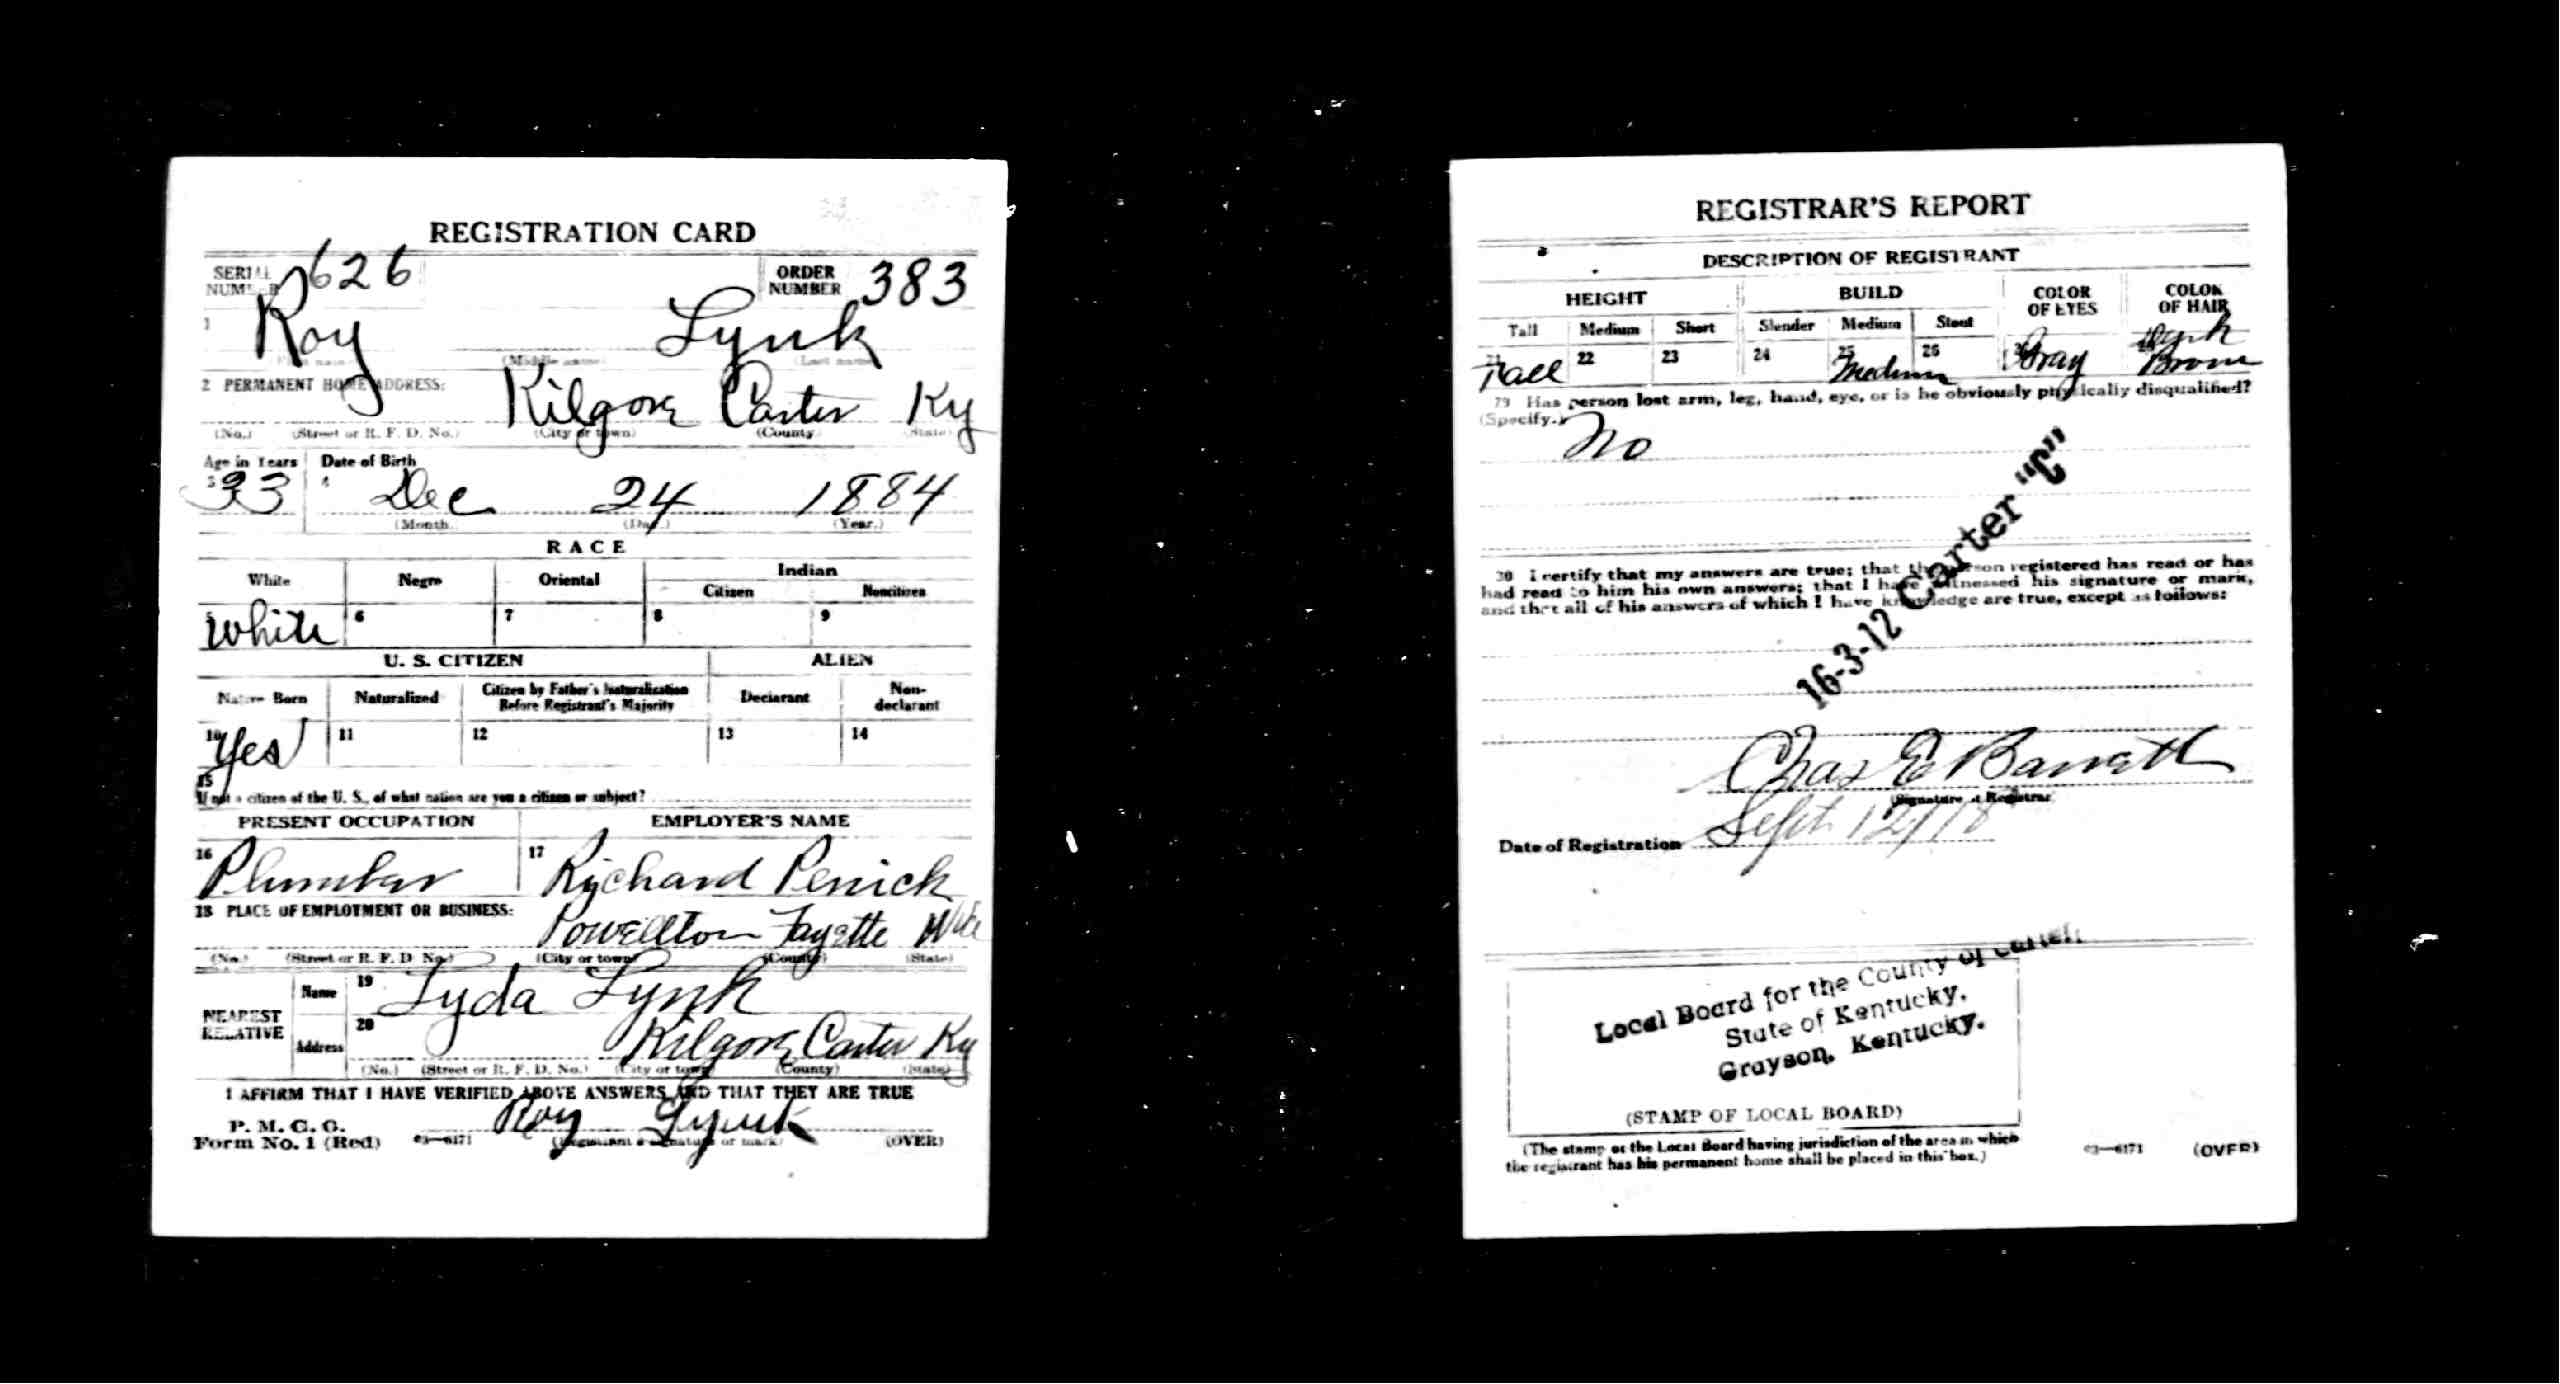 REGISTRATION CARD
SERIAL NUMBER 626 ORDER NUMBER 383
1 Roy Lynk
(First name) (Middle name) (Last name)
2 PERMANENT HOME ADDRESS:
Kilgore Carter Ky
(No.) (Street or R. F. D. No.) (City or town) (County) (State)
Age in Years Date of Birth
3 33 4 Dec 24 1884
(Month.) (Day.) (Year.)
RACE
White Negro Oriental Indian
Citizen Noncitizen
5 White 6 7 8 9
U. S. CITIZEN ALIEN
Native Born Naturalized Citizen by Father's Naturalization Before Registrant's Majority Declarant Non-declarant
10 Yes 11 12 13 14
15
If not a citizen of the U. S., of what nation are you a citizen or subject?
PRESENT OCCUPATION EMPLOYER'S NAME
16 Plumber 17 Richard Penick
18 PLACE OF EMPLOYMENT OR BUSINESS:
Powellton Fayette
(No.) (Street or R. F. D. No.) (City or town) (County) (State)
NEAREST RELATIVE
Name 19 Lyda Lynk
Address 20 Kilgore Carter Ky
(No.) (Street or R. F. D. No.) (City or town) (County) (State)
I AFFIRM THAT I HAVE VERIFIED ABOVE ANSWERS AND THAT THEY ARE TRUE
P. M. G. O.
Form No. 1 (Red) 03—6171 Roy Lynk
(Registrant's signature or mark) (OVER)
REGISTRAR'S REPORT
DESCRIPTION OF REGISTRANT
HEIGHT BUILD COLOR OF EYES COLOR OF HAIR
Tall Medium Short Slender Medium Stout
21 Tall 22 23 24 25 Medium 26 Gray Dark Brown
29 Has person lost arm, leg, hand, eye, or is he obviously physically disqualified?
(Specify.) No
30 I certify that my answers are true; that the person registered has read or has
had read to him his own answers; that I have witnessed his signature or mark,
and that all of his answers of which I have knowledge are true, except as follows:
16-3-12 Carter "C"
Chas E Barrett
(Signature of Registrar)
Date of Registration Sept 12/18
Local Board for the County of Carter,
State of Kentucky,
Grayson, Kentucky.
(STAMP OF LOCAL BOARD)
(The stamp of the Local Board having jurisdiction of the area in which
the registrant has his permanent home shall be placed in this box.)
03—6171 (OVER)